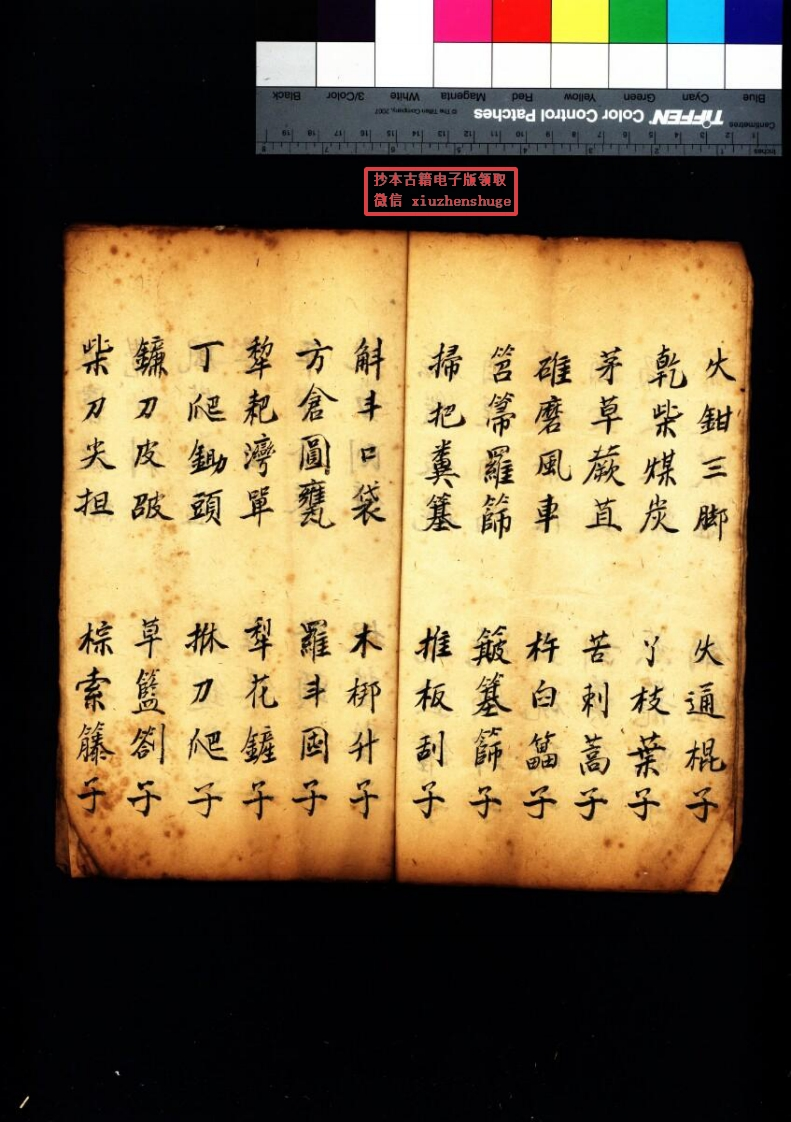 Blue
Cyan
Green
Yellow
Red
Magenta
White
3/Color
Black
TIFFEN Color Control Patches
© The Tiffen Company, 2007
Centimetres
Inches
抄本古籍电子版领取
微信 xiuzhenshuge
火鉗三脚 火通棍子
乾柴煤炭 丫枝葉子
茅草蕨苴 苦刺蒿子
碓磨風車 杵臼䈏子
筥箒羅篩 簸簊篩子
掃把糞簊 推板刮子
斛斗口袋 木梆升子
方倉圓甕 羅斗囤子
犂耙灣單 犁花鏟子
丁爬鋤頭 拼刀爬子
鐮刀皮 草籃劄子
柴刀尖担 棕索籐子